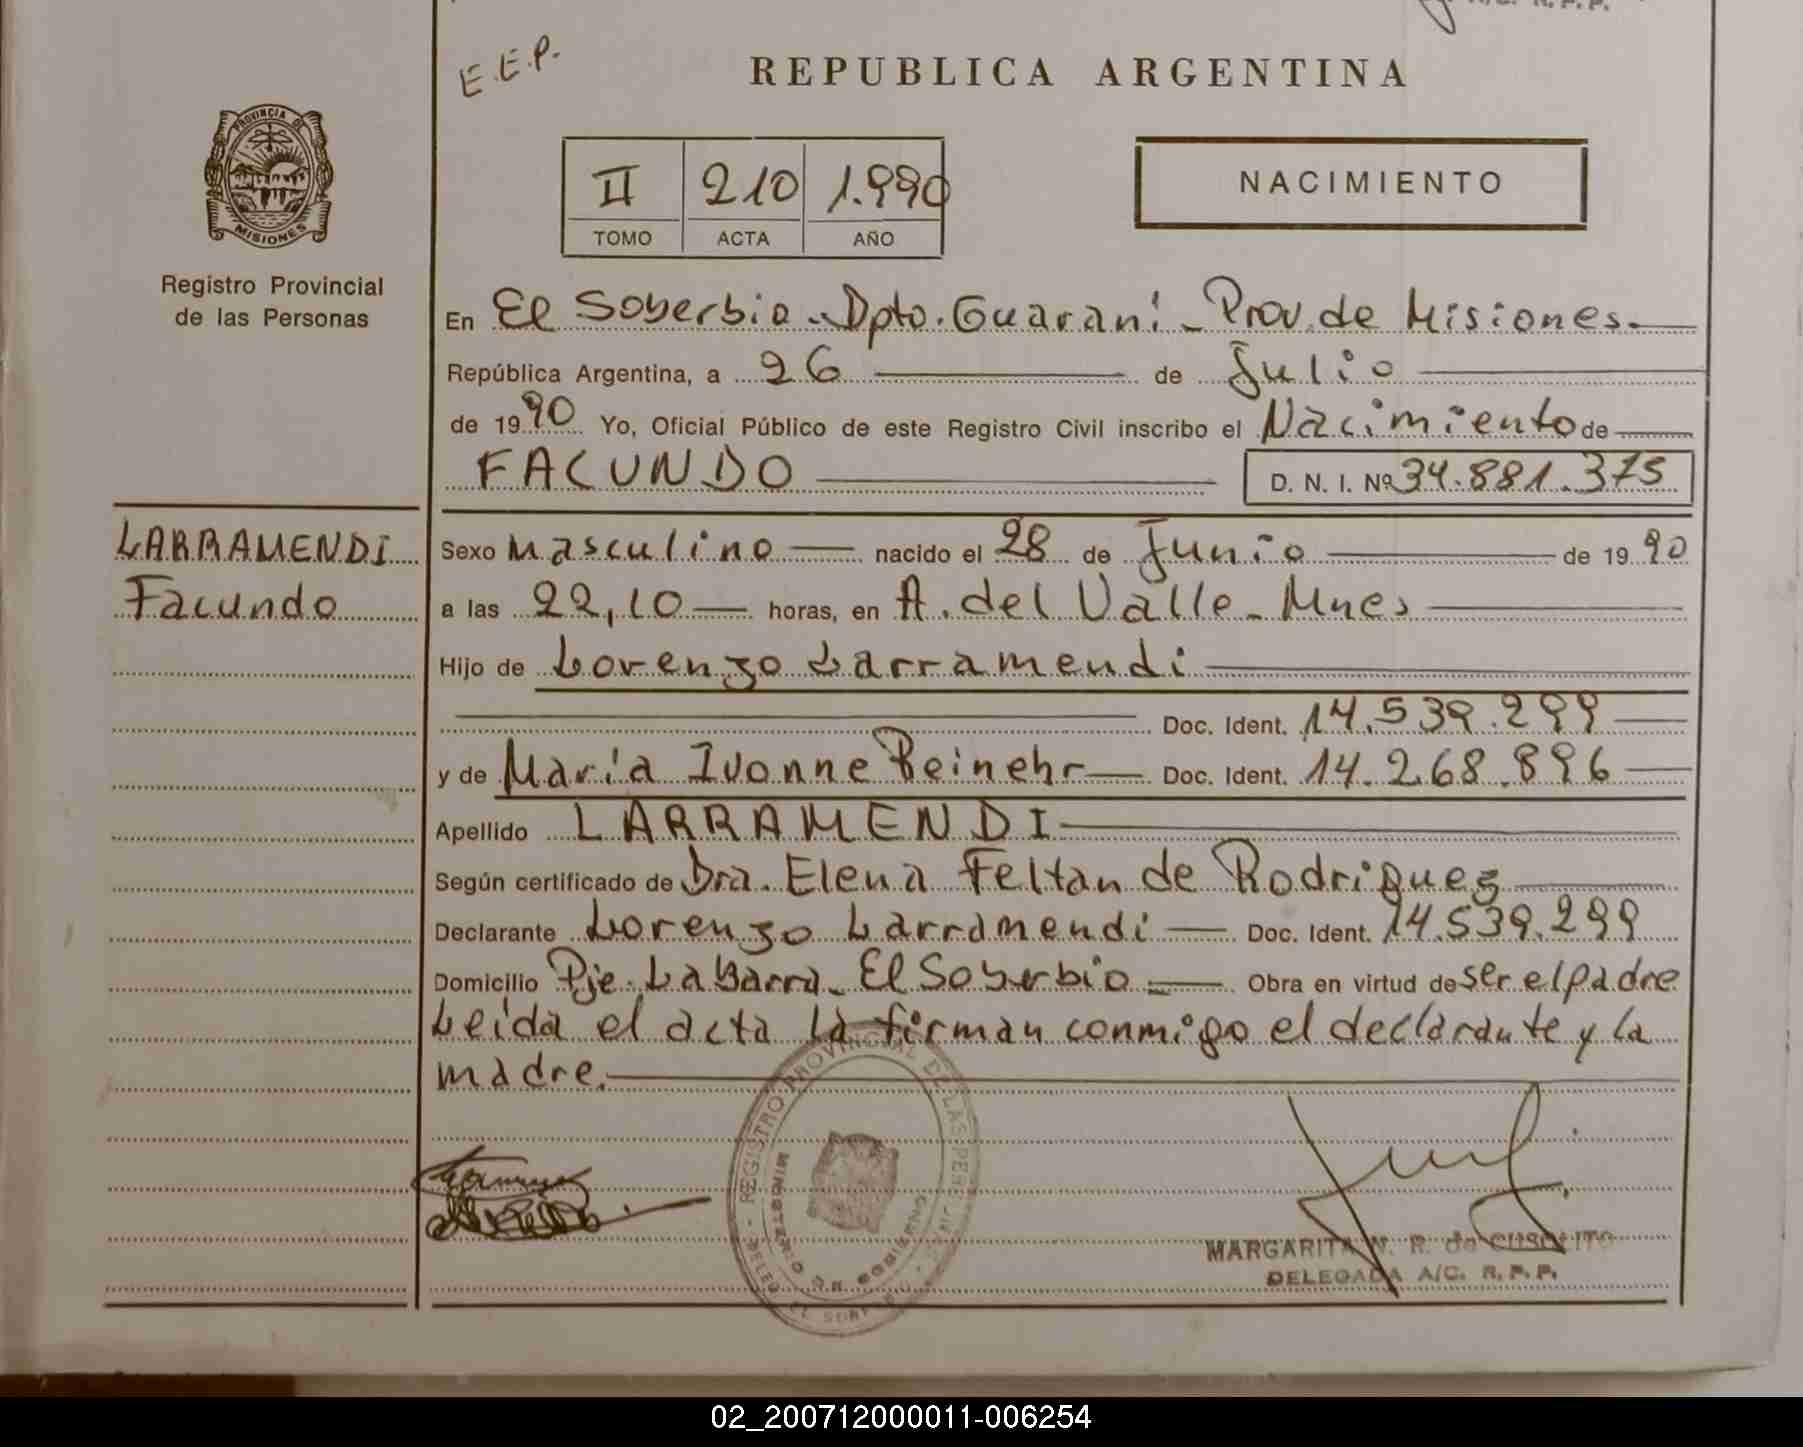 E.E.P.
REPUBLICA ARGENTINA
PROVINCIA DE
MISIONES
II 210 1.990
TOMO ACTA AÑO
NACIMIENTO
Registro Provincial
de las Personas
En El Soberbio - Dpto. Guaraní - Prov. de Misiones.
República Argentina, a 26 de Julio
de 1990 Yo, Oficial Público de este Registro Civil inscribo el Nacimiento de
FACUNDO D. N. I. Nº 34.881.375
LARRAMENDI
Facundo
Sexo Masculino nacido el 28 de Junio de 1990
a las 22,10 horas, en A. del Valle - Mnes
Hijo de Lorenzo Larramendi
Doc. Ident. 14.539.299
y de María Ivonne Reinehr Doc. Ident. 14.268.896
Apellido LARRAMENDI
Según certificado de Dra. Elena Feltan de Rodriguez
Declarante Lorenzo Larramendi Doc. Ident. 14.539.299
Domicilio Pje. La Barra - El Soberbio Obra en virtud de ser el padre
Leída el acta la firman conmigo el declarante y la
madre.
REGISTRO PROVINCIAL DE LAS PERSONAS
MINISTERIO DE GOBIERNO
MARGARITA N. R. de
DELEGADA A/C. R. P. P.
02_200712000011-006254